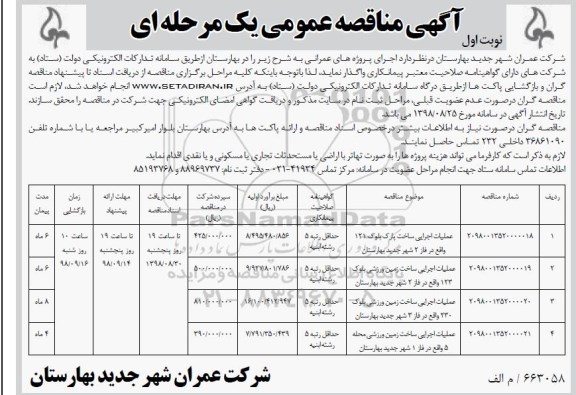 آگهی مناقصه عمومی یک مرحله ای
نوبت اول
شرکت عمران شهر جدید بهارستان درنظردارد اجرای پروژه های عمرانی به شرح زیر را در بهارستان ازطریق سامانه تدارکات الکترونیکی دولت (ستاد) به
شرکت های دارای گواهینامه صلاحیت معتبر پیمانکاری واگذار نماید. لذا باتوجه باینکه کلیه مراحل برگزاری مناقصه از دریافت اسناد تا پیشنهاد مناقصه
گران و بازگشایی پاکت ها ازطریق درگاه سامانه تدارکات الکترونیکی دولت (ستاد) به آدرس WWW.SETADIRAN.IR انجام خواهد شد، لازم است
مناقصه گران درصورت عدم عضویت قبلی، مراحل ثبت نام در سایت مذکور و دریافت گواهی امضای الکترونیکی جهت شرکت در مناقصه را محقق سازند.
تاریخ انتشار آگهی در سامانه مورخ ۱۳۹۸/۰۸/۲۵ می باشد.
مناقصه گران درصورت نیاز به اطلاعات بیشتر درخصوص اسناد مناقصه و ارائه پاکت ها به آدرس بهارستان بلوار امیرکبیر مراجعه یا با شماره تلفن
۳۶۸۶۱۰۹۰ داخلی ۲۳۲ تماس حاصل نمایند.
لازم به ذکر است که کارفرما می تواند هزینه پروژه ها را به صورت تهاتر با اراضی یا مستحدثات تجاری یا مسکونی و یا نقدی اقدام نماید.
اطلاعات تماس سامانه ستاد جهت انجام مراحل عضویت در سامانه: مرکز تماس ۴۱۹۳۴-۰۲۱ - دفتر ثبت نام ۸۸۹۶۹۷۳۷ و ۸۵۱۹۳۷۶۸
ردیف | شماره مناقصه | موضوع مناقصه | گواهینامه صلاحیت پیمانکاری | مبلغ برآورد اولیه (ریال) | سپرده شرکت در مناقصه (ریال) | مهلت دریافت اسناد مناقصه | مهلت ارائه پیشنهاد | زمان بازگشایی | مدت پیمان
۱ | ۲۰۹۸۰۰۱۳۵۲۰۰۰۰۱۸ | عملیات اجرایی ساخت پارک بلوک ۱۲۱ واقع در فاز ۲ شهر جدید بهارستان | حداقل رتبه ۵ رشته ابنیه | ۸/۴۹۵/۴۸۰/۸۵۶ | ۴۲۵/۰۰۰/۰۰۰ | تا ساعت ۱۹ روز پنجشنبه ۱۳۹۸/۰۸/۳۰ | تا ساعت ۱۹ روز پنجشنبه ۹۸/۰۹/۱۴ | ساعت ۱۰ روز شنبه ۹۸/۰۹/۱۶ | ۶ ماه
۲ | ۲۰۹۸۰۰۱۳۵۲۰۰۰۰۱۹ | عملیات اجرایی ساخت زمین ورزشی بلوک ۱۲۳ واقع در فاز ۲ شهر جدید بهارستان | حداقل رتبه ۵ رشته ابنیه | ۹/۹۲۷/۸۰۱/۷۸۶ | ۵۰۰/۰۰۰/۰۰۰ | ۶ ماه
۳ | ۲۰۹۸۰۰۱۳۵۲۰۰۰۰۲۰ | عملیات اجرایی ساخت زمین ورزشی بلوک ۲۳۰ واقع در فاز ۳ شهر جدید بهارستان | حداقل رتبه ۵ رشته ابنیه | ۸۱۰/۰۰۰/۰۰۰ | ۸ ماه
۴ | ۲۰۹۸۰۰۱۳۵۲۰۰۰۰۲۱ | عملیات اجرایی ساخت زمین ورزشی محله ۵ واقع در فاز ۱ شهر جدید بهارستان | حداقل رتبه ۵ رشته ابنیه | ۷/۷۹۱/۳۵۰/۴۳۹ | ۳۹۰/۰۰۰/۰۰۰ | ۴ ماه
۶۶۳۰۵۸ / م الف
شرکت عمران شهر جدید بهارستان